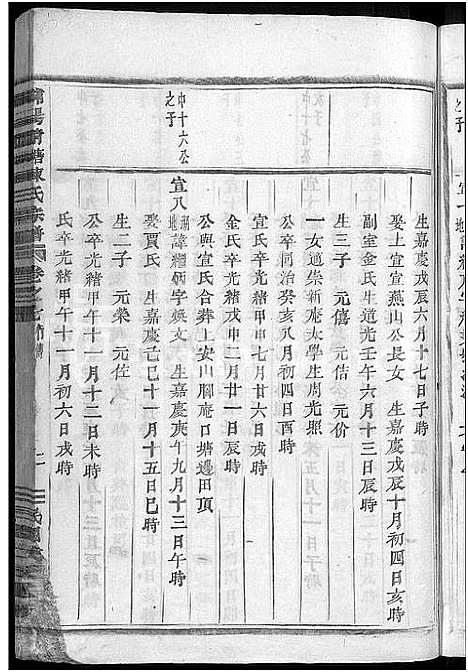 生嘉慶戊辰六月十七日子時
娶上宜宣燕山公長女　生嘉慶戊辰十月初四日亥時
副室金氏生道光壬午六月十三日辰時
生三子　元僖　元佶　元价
一女適崇新庵太學生周光照
公卒同治癸亥八月初四日酉時
宣氏卒光緒甲申七月廿六日戌時
金氏卒光緒戊申二月廿一日辰時
公與宣氏合葬上安山腳庵口塘邊田頂
中十六公之子
宣八　諱繼炳字煥文　生嘉慶庚午九月十三日午時
娶賈氏　生嘉慶己巳十一月十五日巳時
生二子　元榮　元佐
公卒光緒甲午十一月十二日未時
氏卒光緒甲午十一月初六日戌時
陳氏宗譜
卷之七